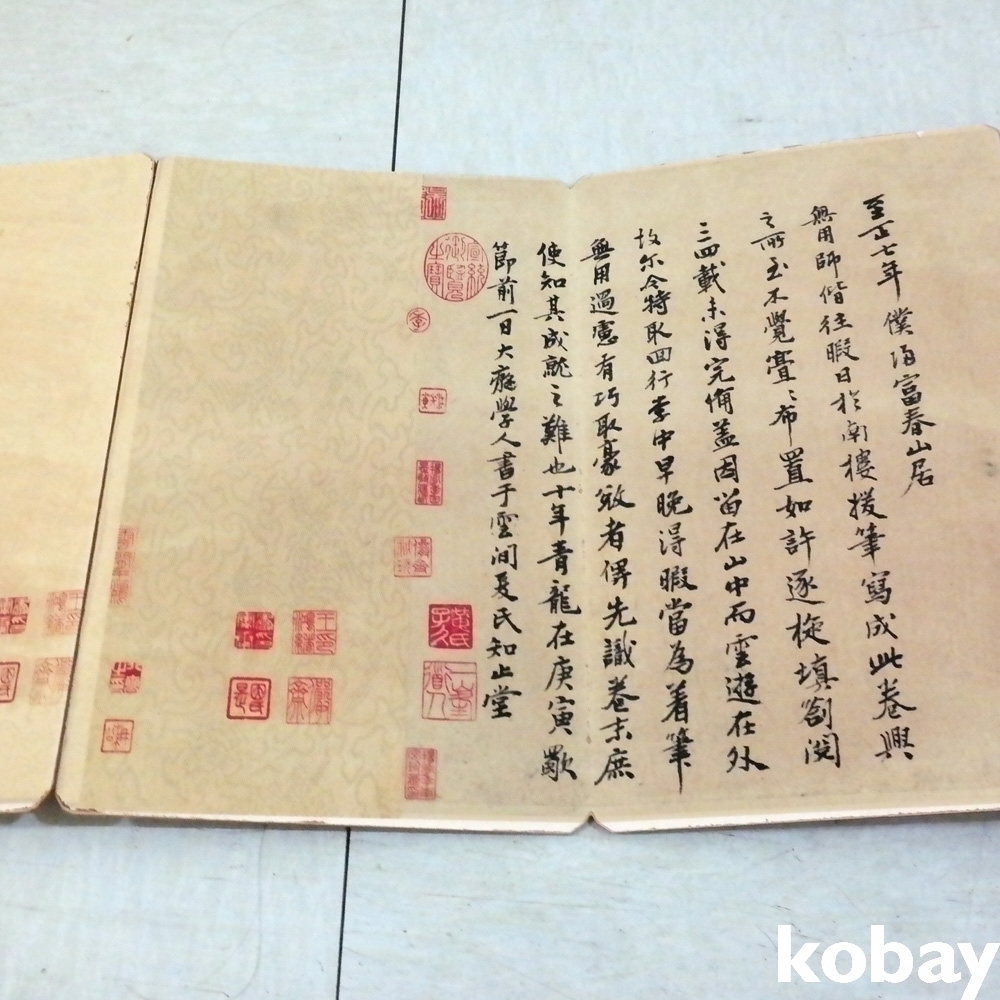 至正七年僕歸富春山居
無用師偕往暇日於南樓援筆寫成此卷興
之所至不覺亹〻布置如許逐旋填劄閱
三四載未得完備蓋因留在山中而雲遊在外
故尔今特取回行李中早晚得暇當為着筆
無用過慮有巧取豪敚者俾先識卷末庶
使知其成就之難也十年青龍在庚寅歜
節前一日大癡學人書于雲間夏氏知止堂
宣統御覽之寶
黃氏子久
一峯道人
kobay